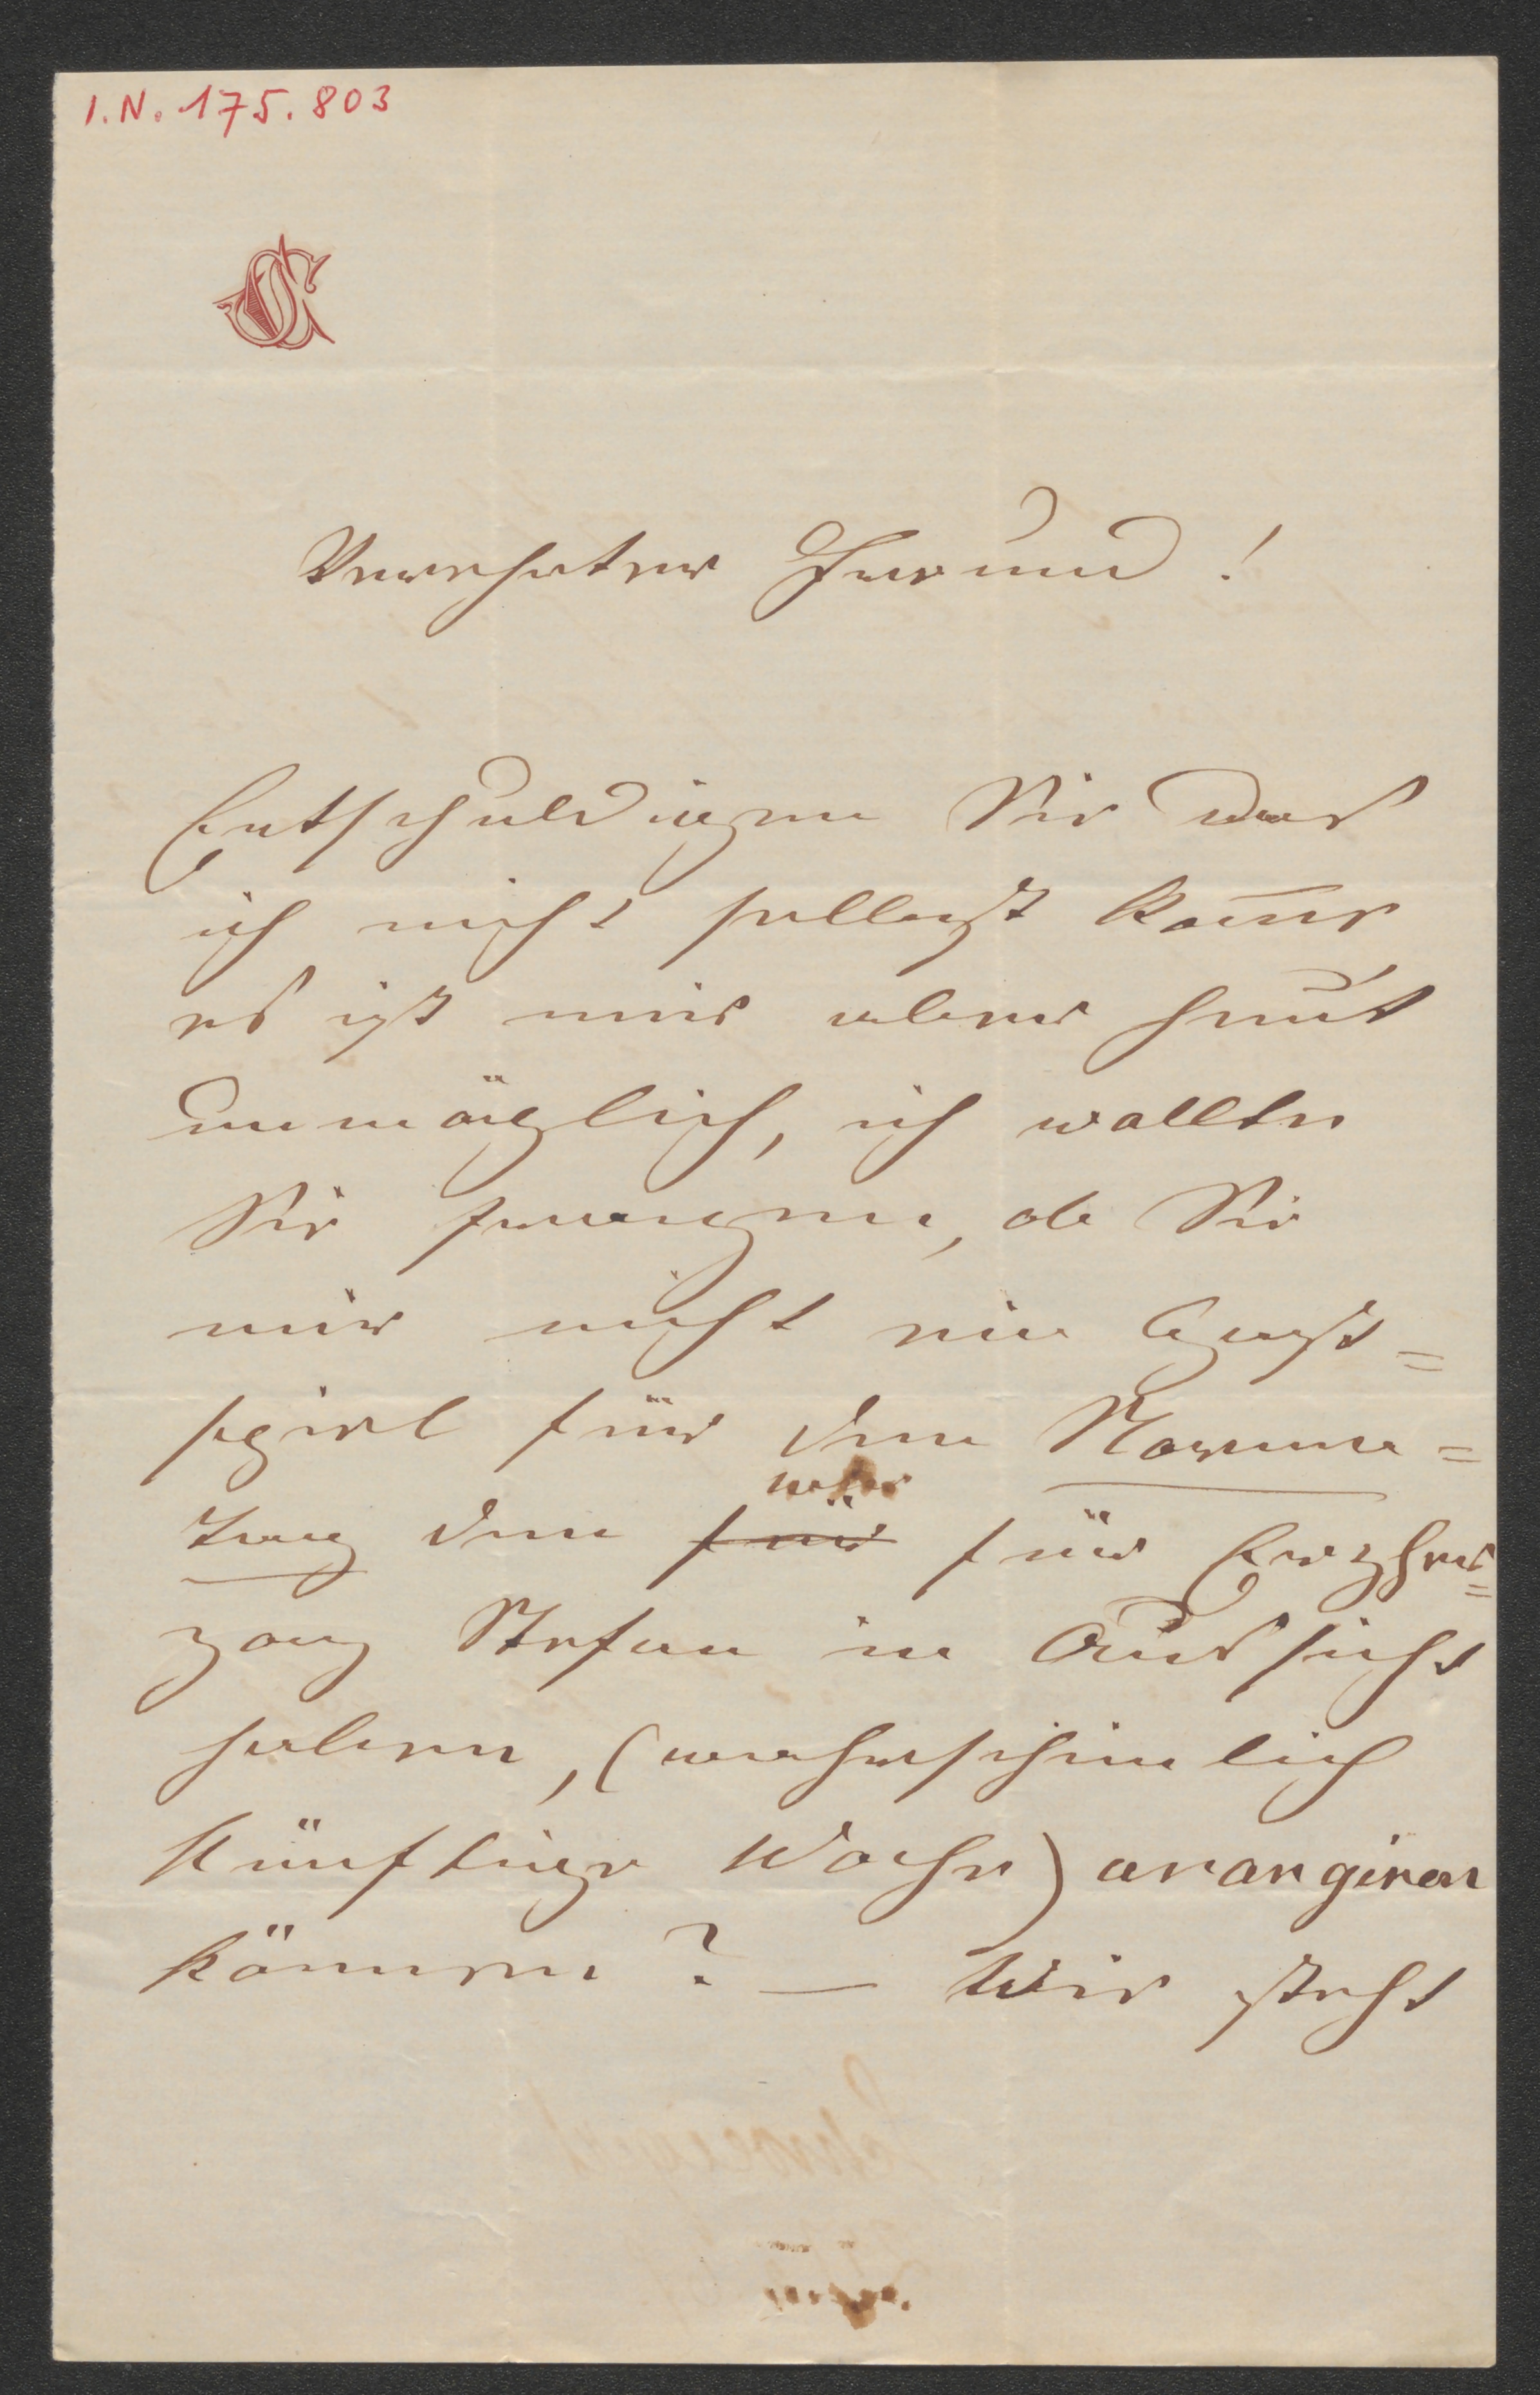 I.N. 175.803
Verehrter Freund!
Entschuldigen Sie das
ich nicht sellbst kom̄e
es ist mir aber heut
unmöglich, ich wollte
Sie fragen, ob Sie
mir nicht ein Gast=
spiel für den Norma=
tag den wir
für für Erzher=
zog Stefan in Aussicht
haben, (wahrscheinlich
künftige Woche) arangiren
können? — Wie steht